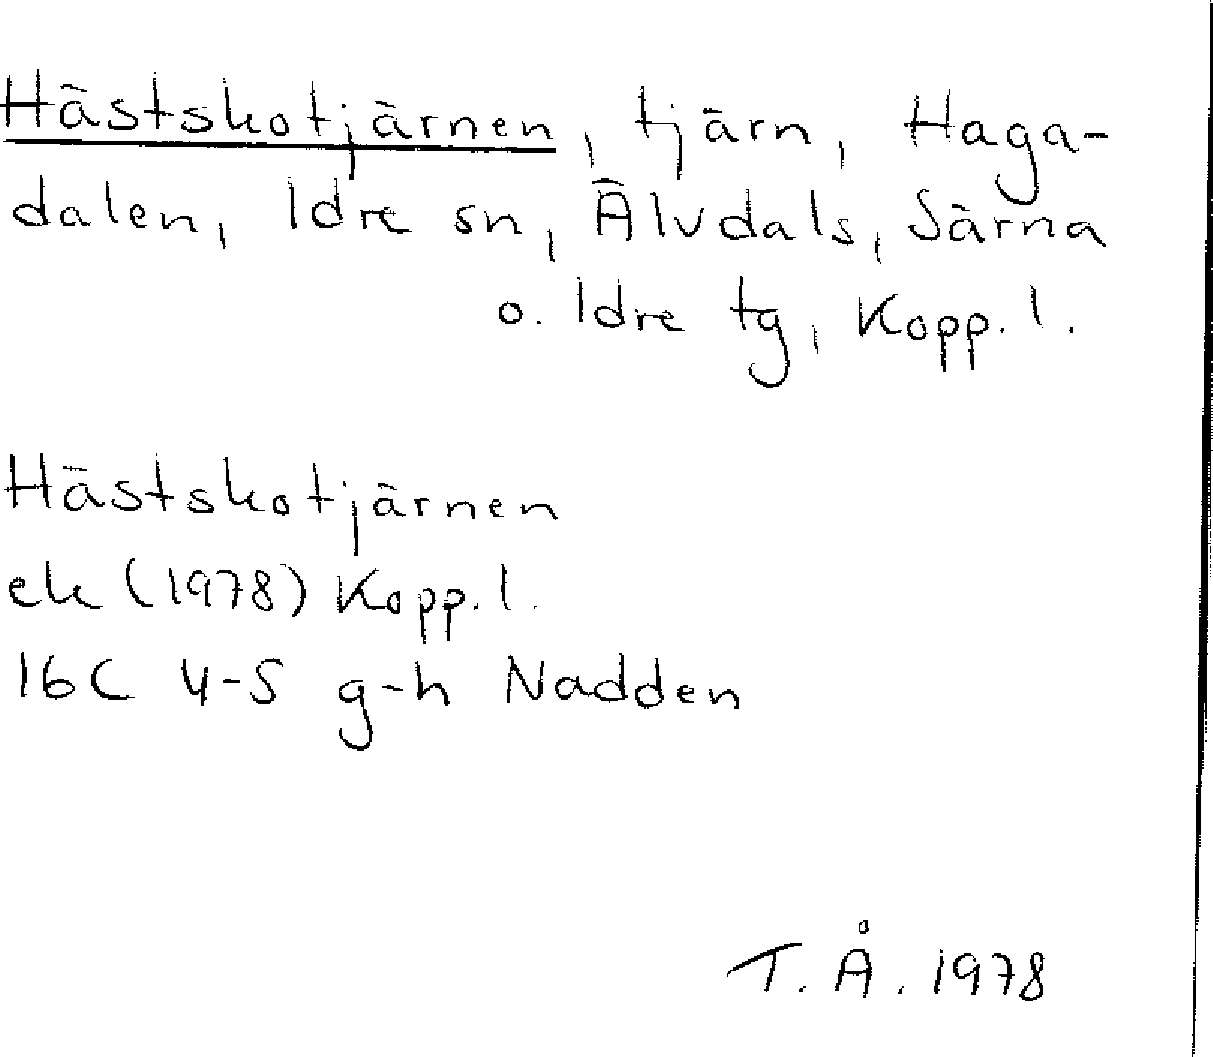 Hästskotjärnen, tjärn, Haga-
dalen, Idre sn, Älvdals, Särna
o. Idre tg, Kopp. l.
Hästskotjärnen
ek (1978) Kopp. l.
16C 4-5 g-h Nadden
T. Å. 1978